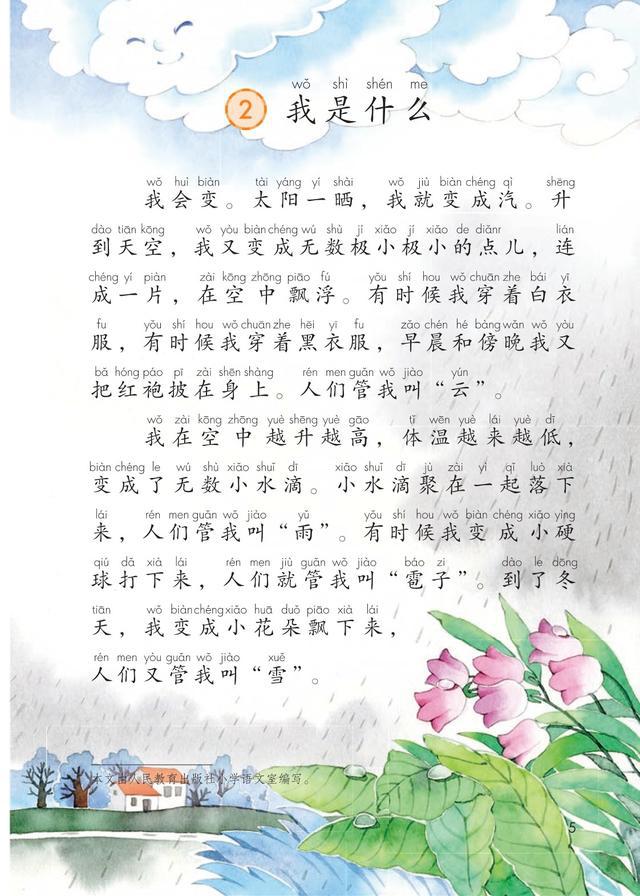 wǒ shì shén me
2 我是什么
wǒ huì biàn tài yáng yí shài wǒ jiù biàn chéng qì shēng
我会变。太阳一晒，我就变成汽。升
dào tiān kōng wǒ yòu biàn chéng wú shù jí xiǎo jí xiǎo de diǎnr lián
到天空，我又变成无数极小极小的点儿，连
chéng yí piàn zài kōng zhōng piāo fú yǒu shí hou wǒ chuān zhe bái yī
成一片，在空中飘浮。有时候我穿着白衣
fu yǒu shí hou wǒ chuān zhe hēi yī fu zǎo chén hé bàng wǎn wǒ yòu
服，有时候我穿着黑衣服，早晨和傍晚我又
bǎ hóng páo pī zài shēn shàng rén men guǎn wǒ jiào yún
把红袍披在身上。人们管我叫“云”。
wǒ zài kōng zhōng yuè shēng yuè gāo tǐ wēn yuè lái yuè dī
我在空中越升越高，体温越来越低，
biàn chéng le wú shù xiǎo shuǐ dī xiǎo shuǐ dī jù zài yì qǐ luò xià
变成了无数小水滴。小水滴聚在一起落下
lái rén men guǎn wǒ jiào yǔ yǒu shí hou wǒ biàn chéng xiǎo yìng
来，人们管我叫“雨”。有时候我变成小硬
qiú dǎ xià lái rén men jiù guǎn wǒ jiào báo zi dào le dōng
球打下来，人们就管我叫“雹子”。到了冬
tiān wǒ biàn chéng xiǎo huā duǒ piāo xià lái
天，我变成小花朵飘下来，
rén men yòu guǎn wǒ jiào xuě
人们又管我叫“雪”。
本文由人民教育出版社小学语文室编写。
5